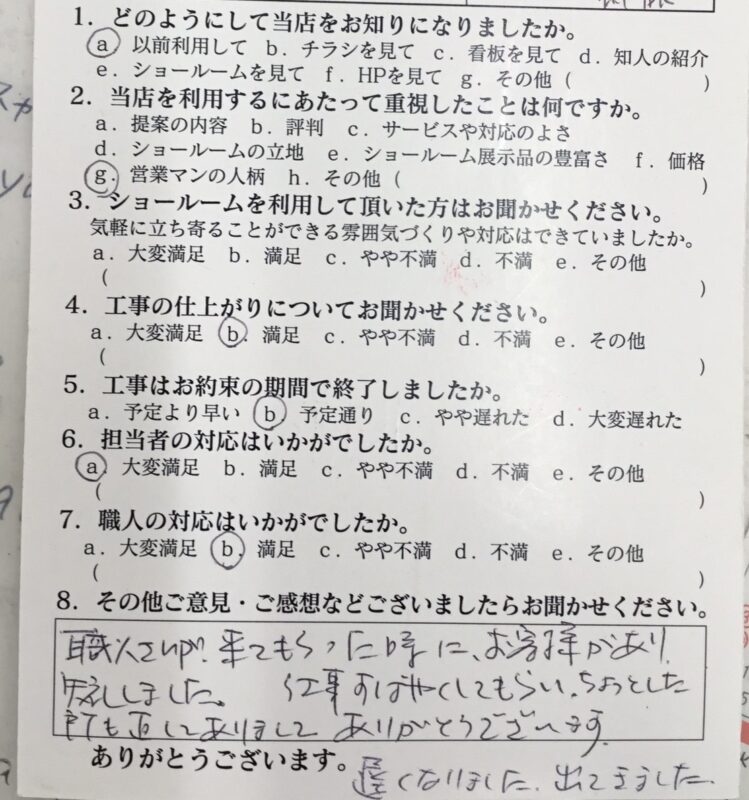 1. どのようにして当店をお知りになりましたか。
a 以前利用して b. チラシを見て c. 看板を見て d. 知人の紹介
e. ショールームを見て f. HPを見て g. その他 ( )
2. 当店を利用するにあたって重視したことは何ですか。
a. 提案の内容 b. 評判 c. サービスや対応のよさ
d. ショールームの立地 e. ショールーム展示品の豊富さ f. 価格
g. 営業マンの人柄 h. その他 ( )
3. ショールームを利用して頂いた方はお聞かせください。
気軽に立ち寄ることができる雰囲気づくりや対応はできていましたか。
a. 大変満足 b. 満足 c. やや不満 d. 不満 e. その他
( )
4. 工事の仕上がりについてお聞かせください。
a. 大変満足 b. 満足 c. やや不満 d. 不満 e. その他
( )
5. 工事はお約束の期間で終了しましたか。
a. 予定より早い b 予定通り c. やや遅れた d. 大変遅れた
6. 担当者の対応はいかがでしたか。
a 大変満足 b. 満足 c. やや不満 d. 不満 e. その他
( )
7. 職人の対応はいかがでしたか。
a. 大変満足 b. 満足 c. やや不満 d. 不満 e. その他
( )
8. その他ご意見・ご感想などございましたらお聞かせください。
職人さんが、来てもらった時に、お客様があり、
失礼しました。 工事すばやくしてもらい、ちょっとした
所も直してありまして ありがとうございます。
ありがとうございます。
遅くなりました、出てきました。